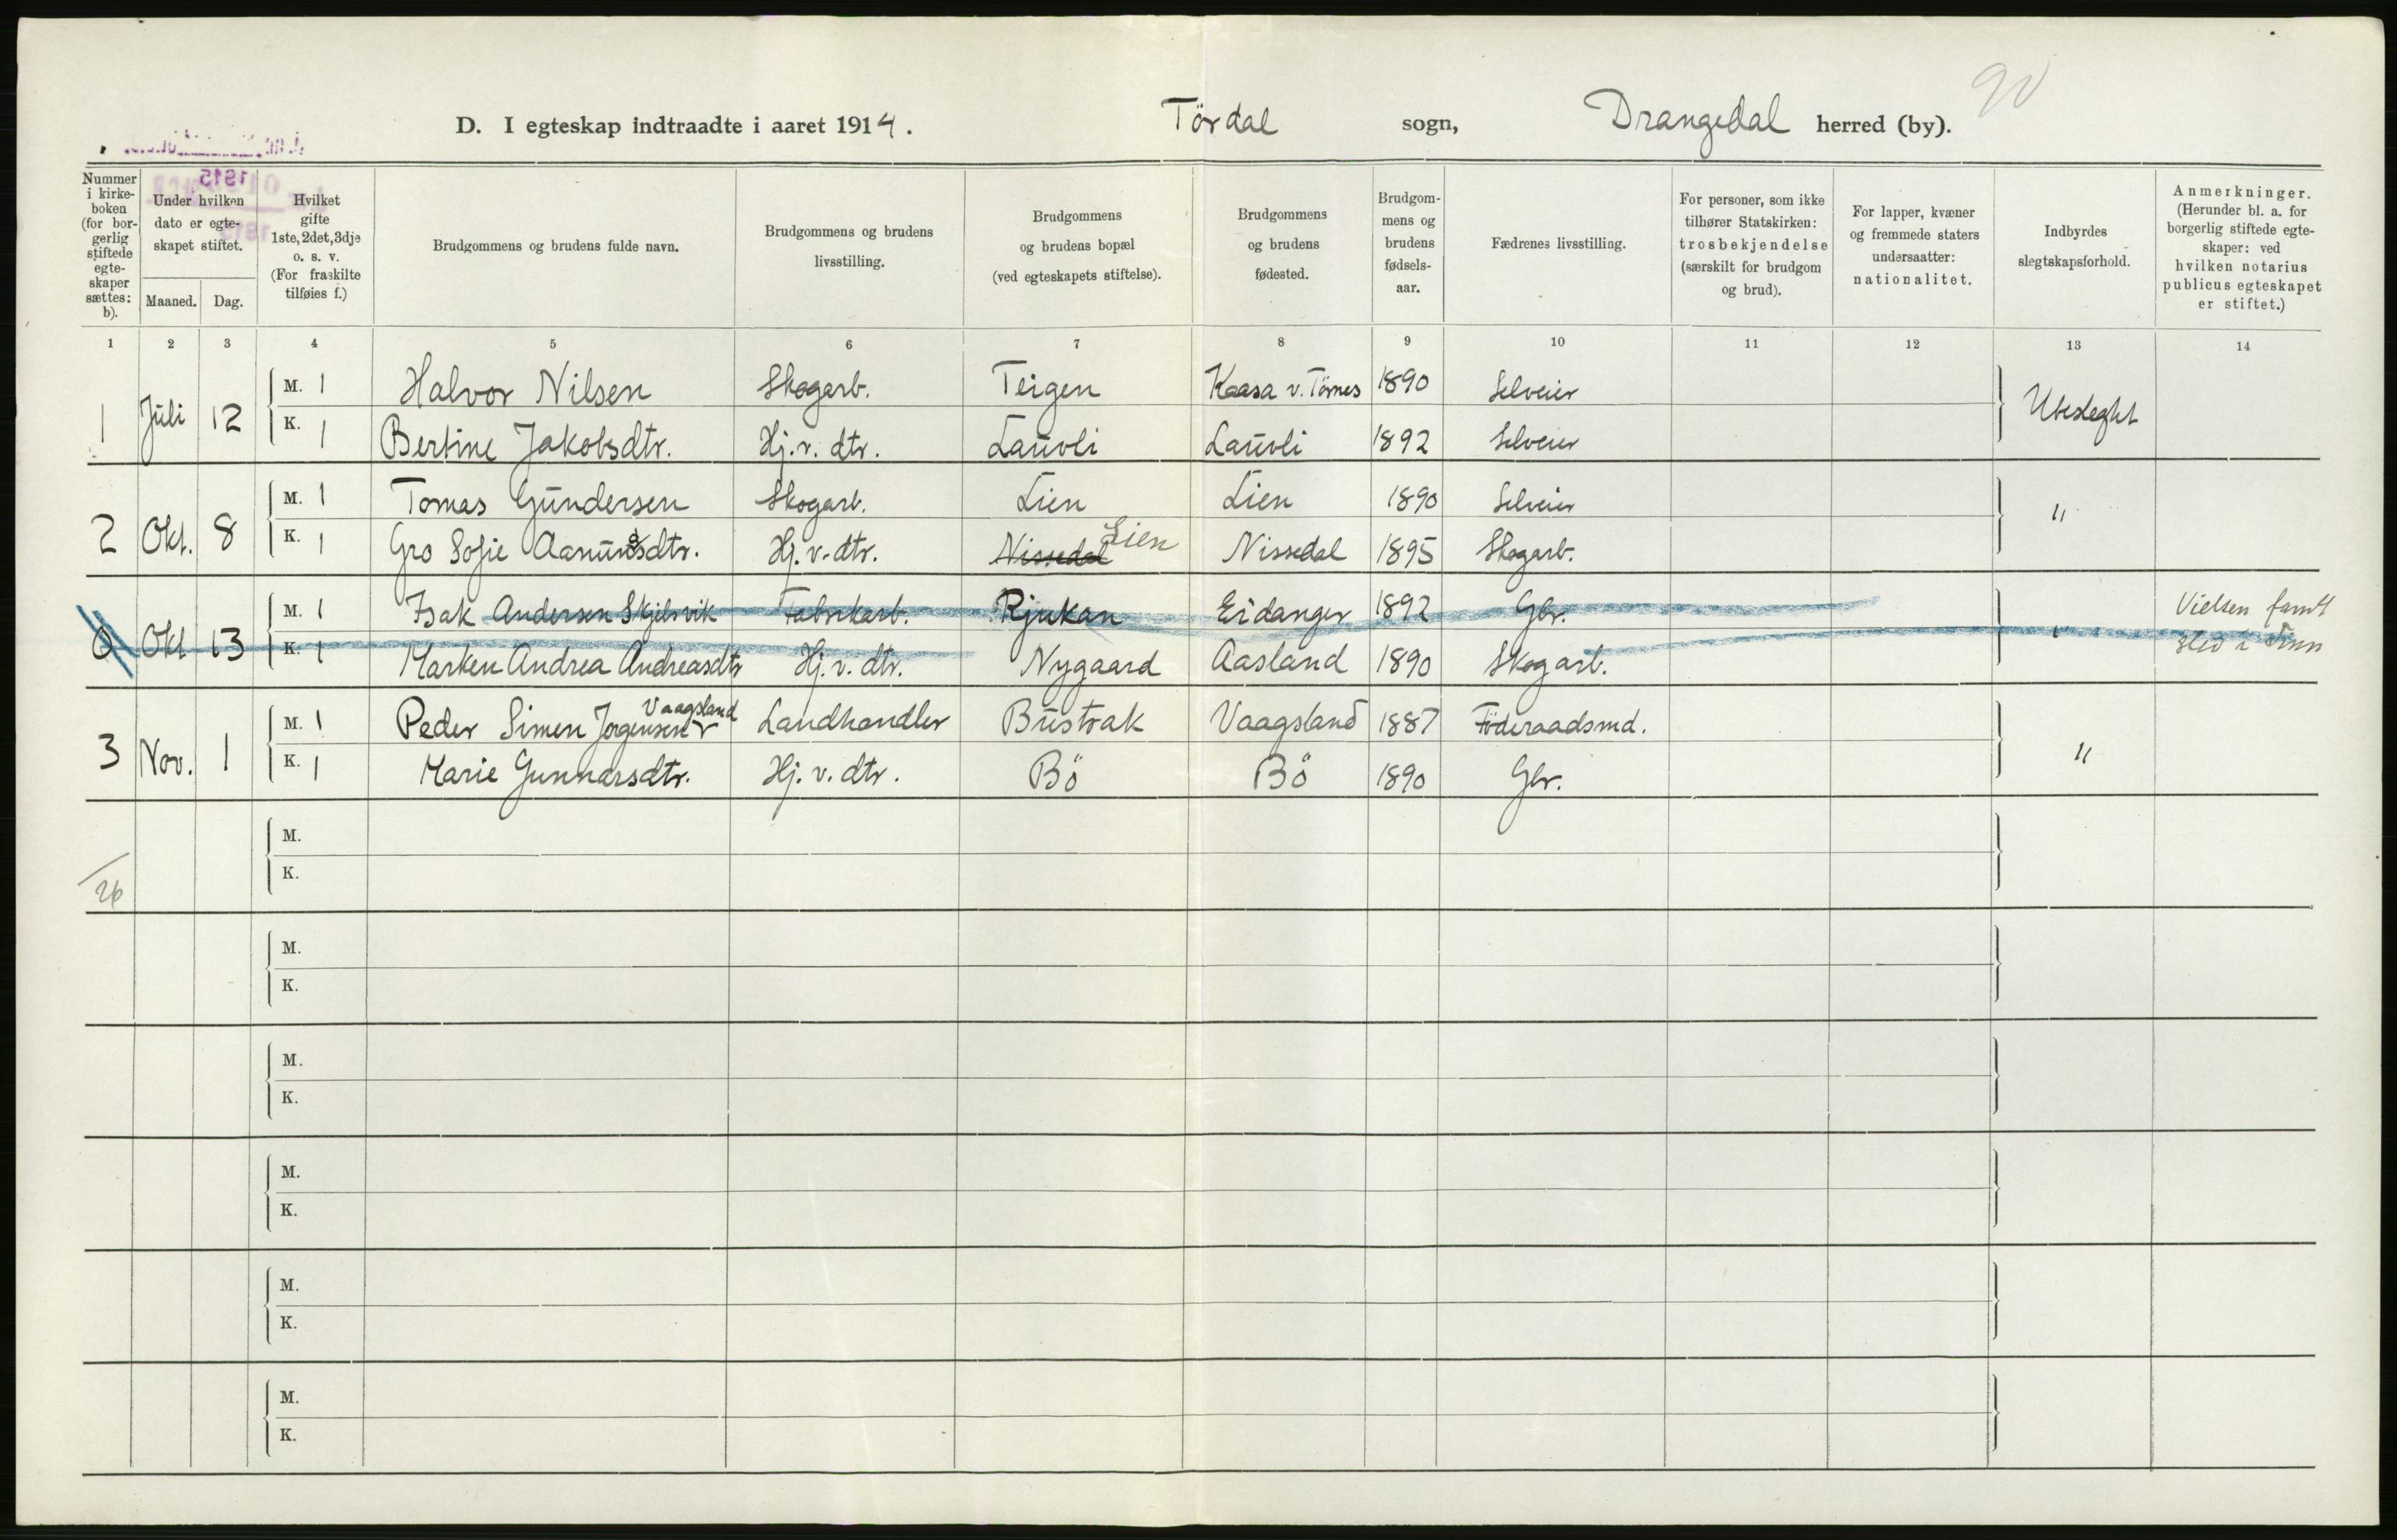 90
D. I egteskap indtraadte i aaret 1914. Tördal sogn, Drangedal herred (by).
1915
Nummer i kirkeboken (for borgerlig stiftede egteskaper sættes: b).
Under hvilken dato er egteskapet stiftet.
Maaned. Dag.
Hvilket gifte 1ste, 2det, 3dje o. s. v. (For fraskilte tilføies f.)
Brudgommens og brudens fulde navn.
Brudgommens og brudens livsstilling.
Brudgommens og brudens bopæl (ved egteskapets stiftelse).
Brudgommens og brudens fødested.
Brudgommens og brudens fødselsaar.
Fædrenes livsstilling.
For personer, som ikke tilhører Statskirken: trosbekjendelse (særskilt for brudgom og brud).
For lapper, kvæner og fremmede staters undersaatter: nationalitet.
Indbyrdes slegtskapsforhold.
Anmerkninger. (Herunder bl. a. for borgerlig stiftede egteskaper: ved hvilken notarius publicus egteskapet er stiftet.)
1 2 3 4 5 6 7 8 9 10 11 12 13 14
M. 1 Halvor Nilsen Skogarb. Teigen Kaasa v. Törnes 1890 Selveier
1 Juli 12 Ubeslegtet
K. 1 Bertine Jakobsdtr. Hj. v. dtr. Lauvli Lauvli 1892 Selveier
M. 1 Tomas Gundersen Skogarb. Lien Lien 1890 Selveier
2 Okt. 8 "
K. 1 Gro Sofie Aanunsdtr. Hj. v. dtr. Nissedal Lien Nissedal 1895 Skogarb.
M. 1 Isak Andersen Skjelsvik Fabrikarb. Rjukan Eidanger 1892 Gbr. Vielsen fandt
Okt 13 " sted i Tinn
K. 1 Marken Andrea Andreasdtr Hj. v. dtr. Nygaard Aasland 1890 Skogarb.
M. 1 Peder Simen Jorgensen Vaagsland Landhandler Bustrak Vaagsland 1887 Föderaadsmd.
3 Nov. 1 "
K. 1 Marie Gunnarsdtr. Hj. v. dtr. Bö Bö 1890 Gbr.
M.
K.
26
M.
K.
M.
K.
M.
K.
M.
K.
M.
K.